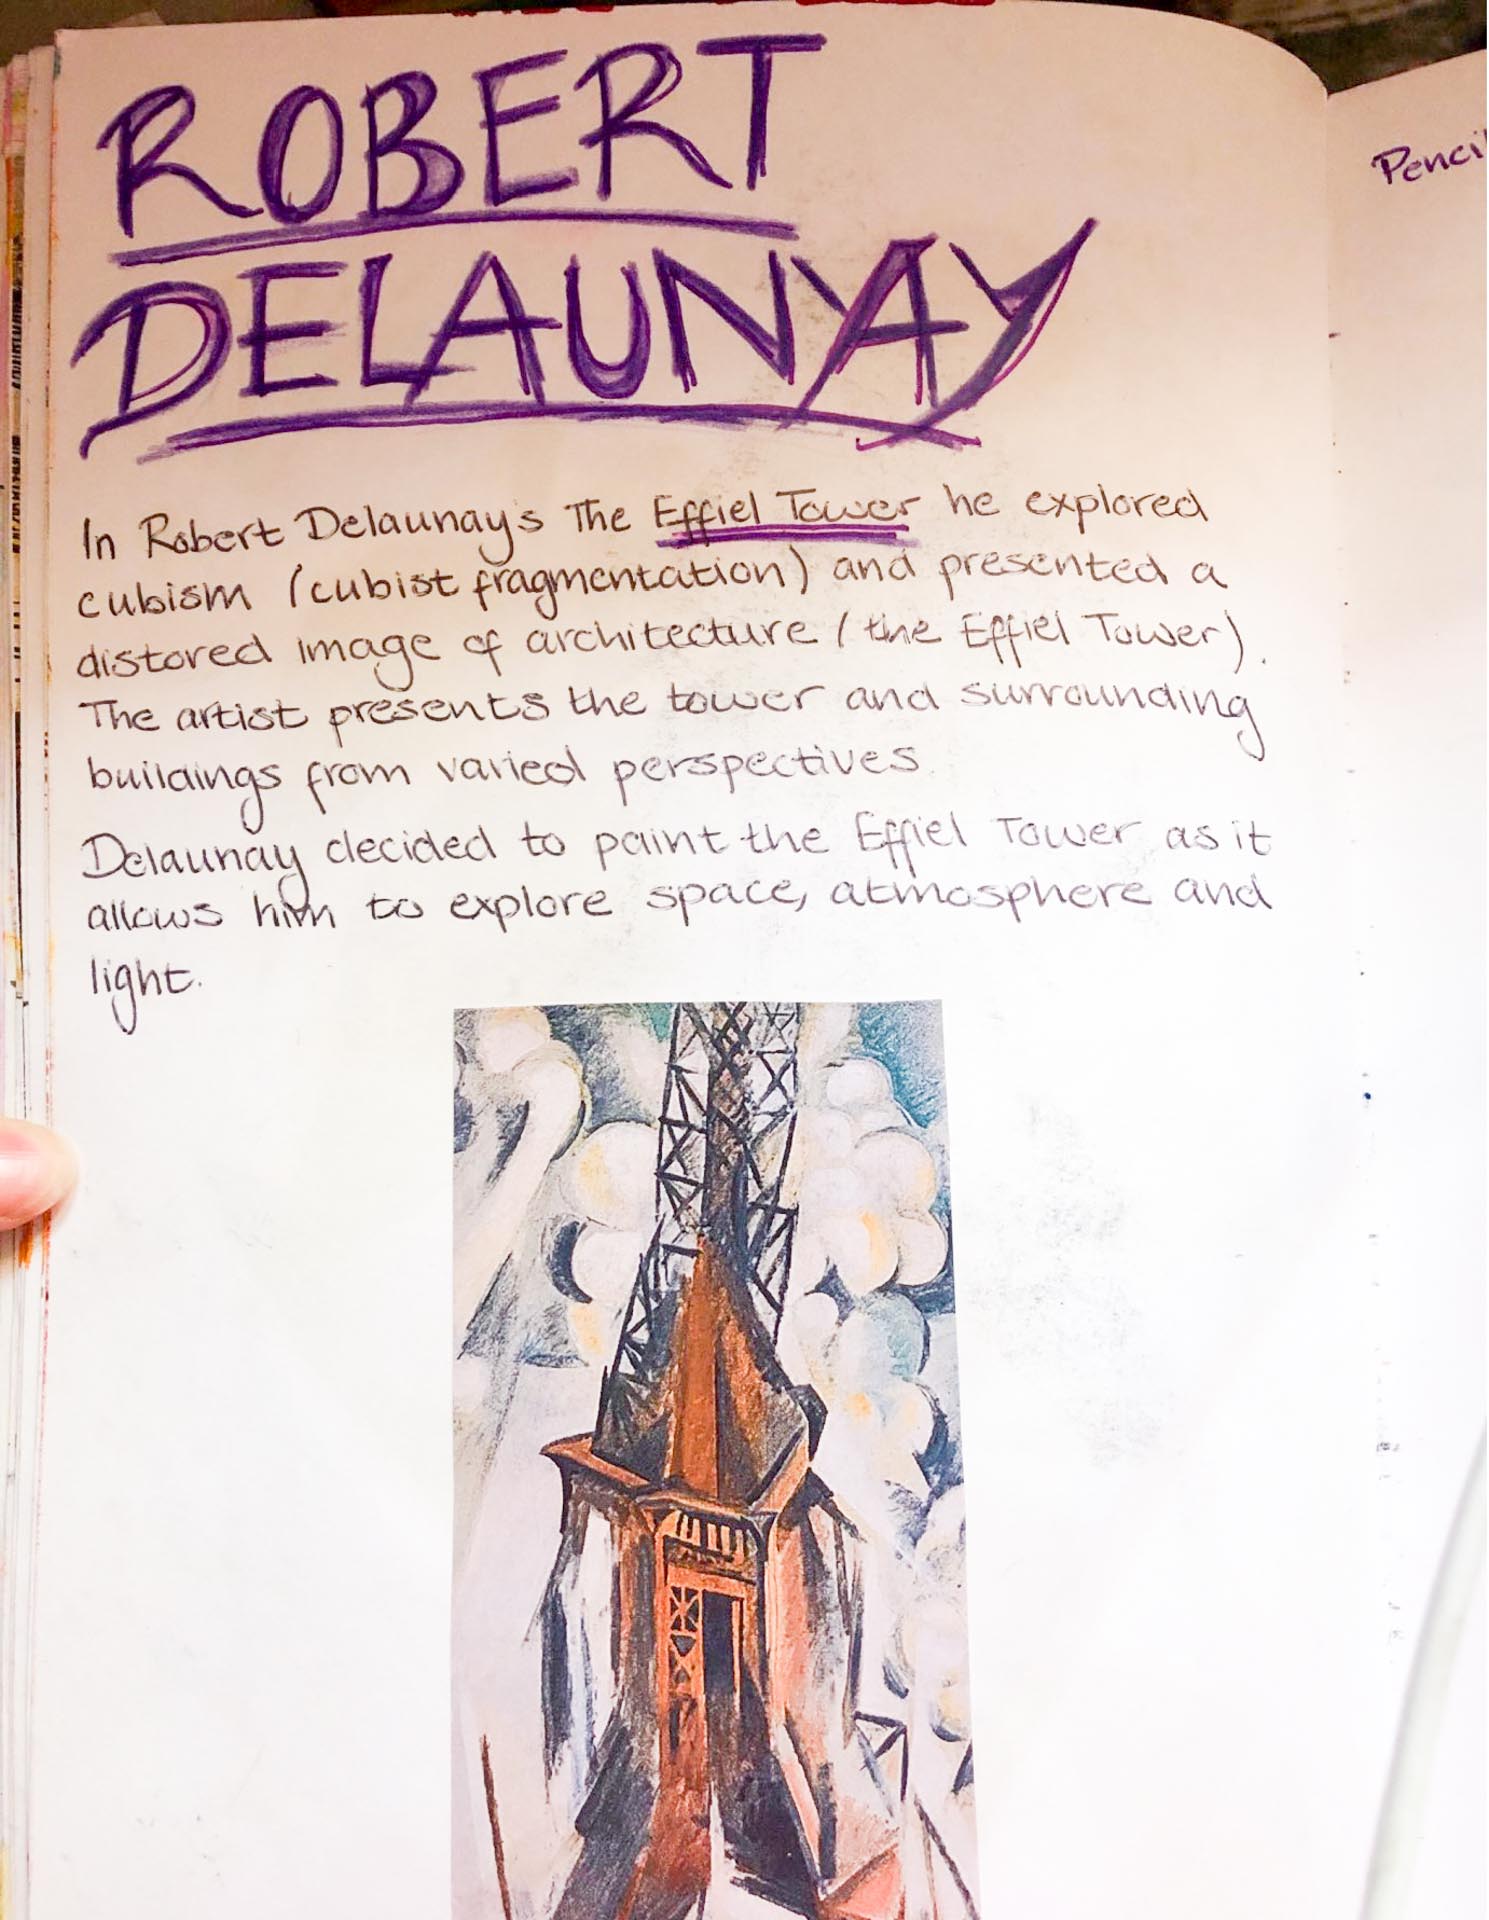 ROBERT
DELAUNAY
In Robert Delaunay's The Effiel Tower he explored
cubism (cubist fragmentation) and presented a
distored image of architecture (the Effiel Tower).
The artist presents the tower and surrounding
buildings from varied perspectives
Delaunay decided to paint the Effiel Tower as it
allows him to explore space, atmosphere and
light.
Pencil